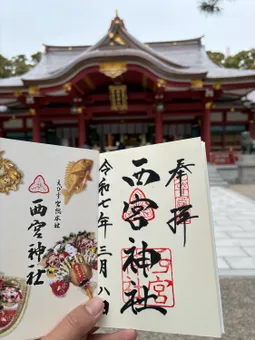 奉拝
西宮神社
令和七年三月八日
えびす宮総本社
西宮神社